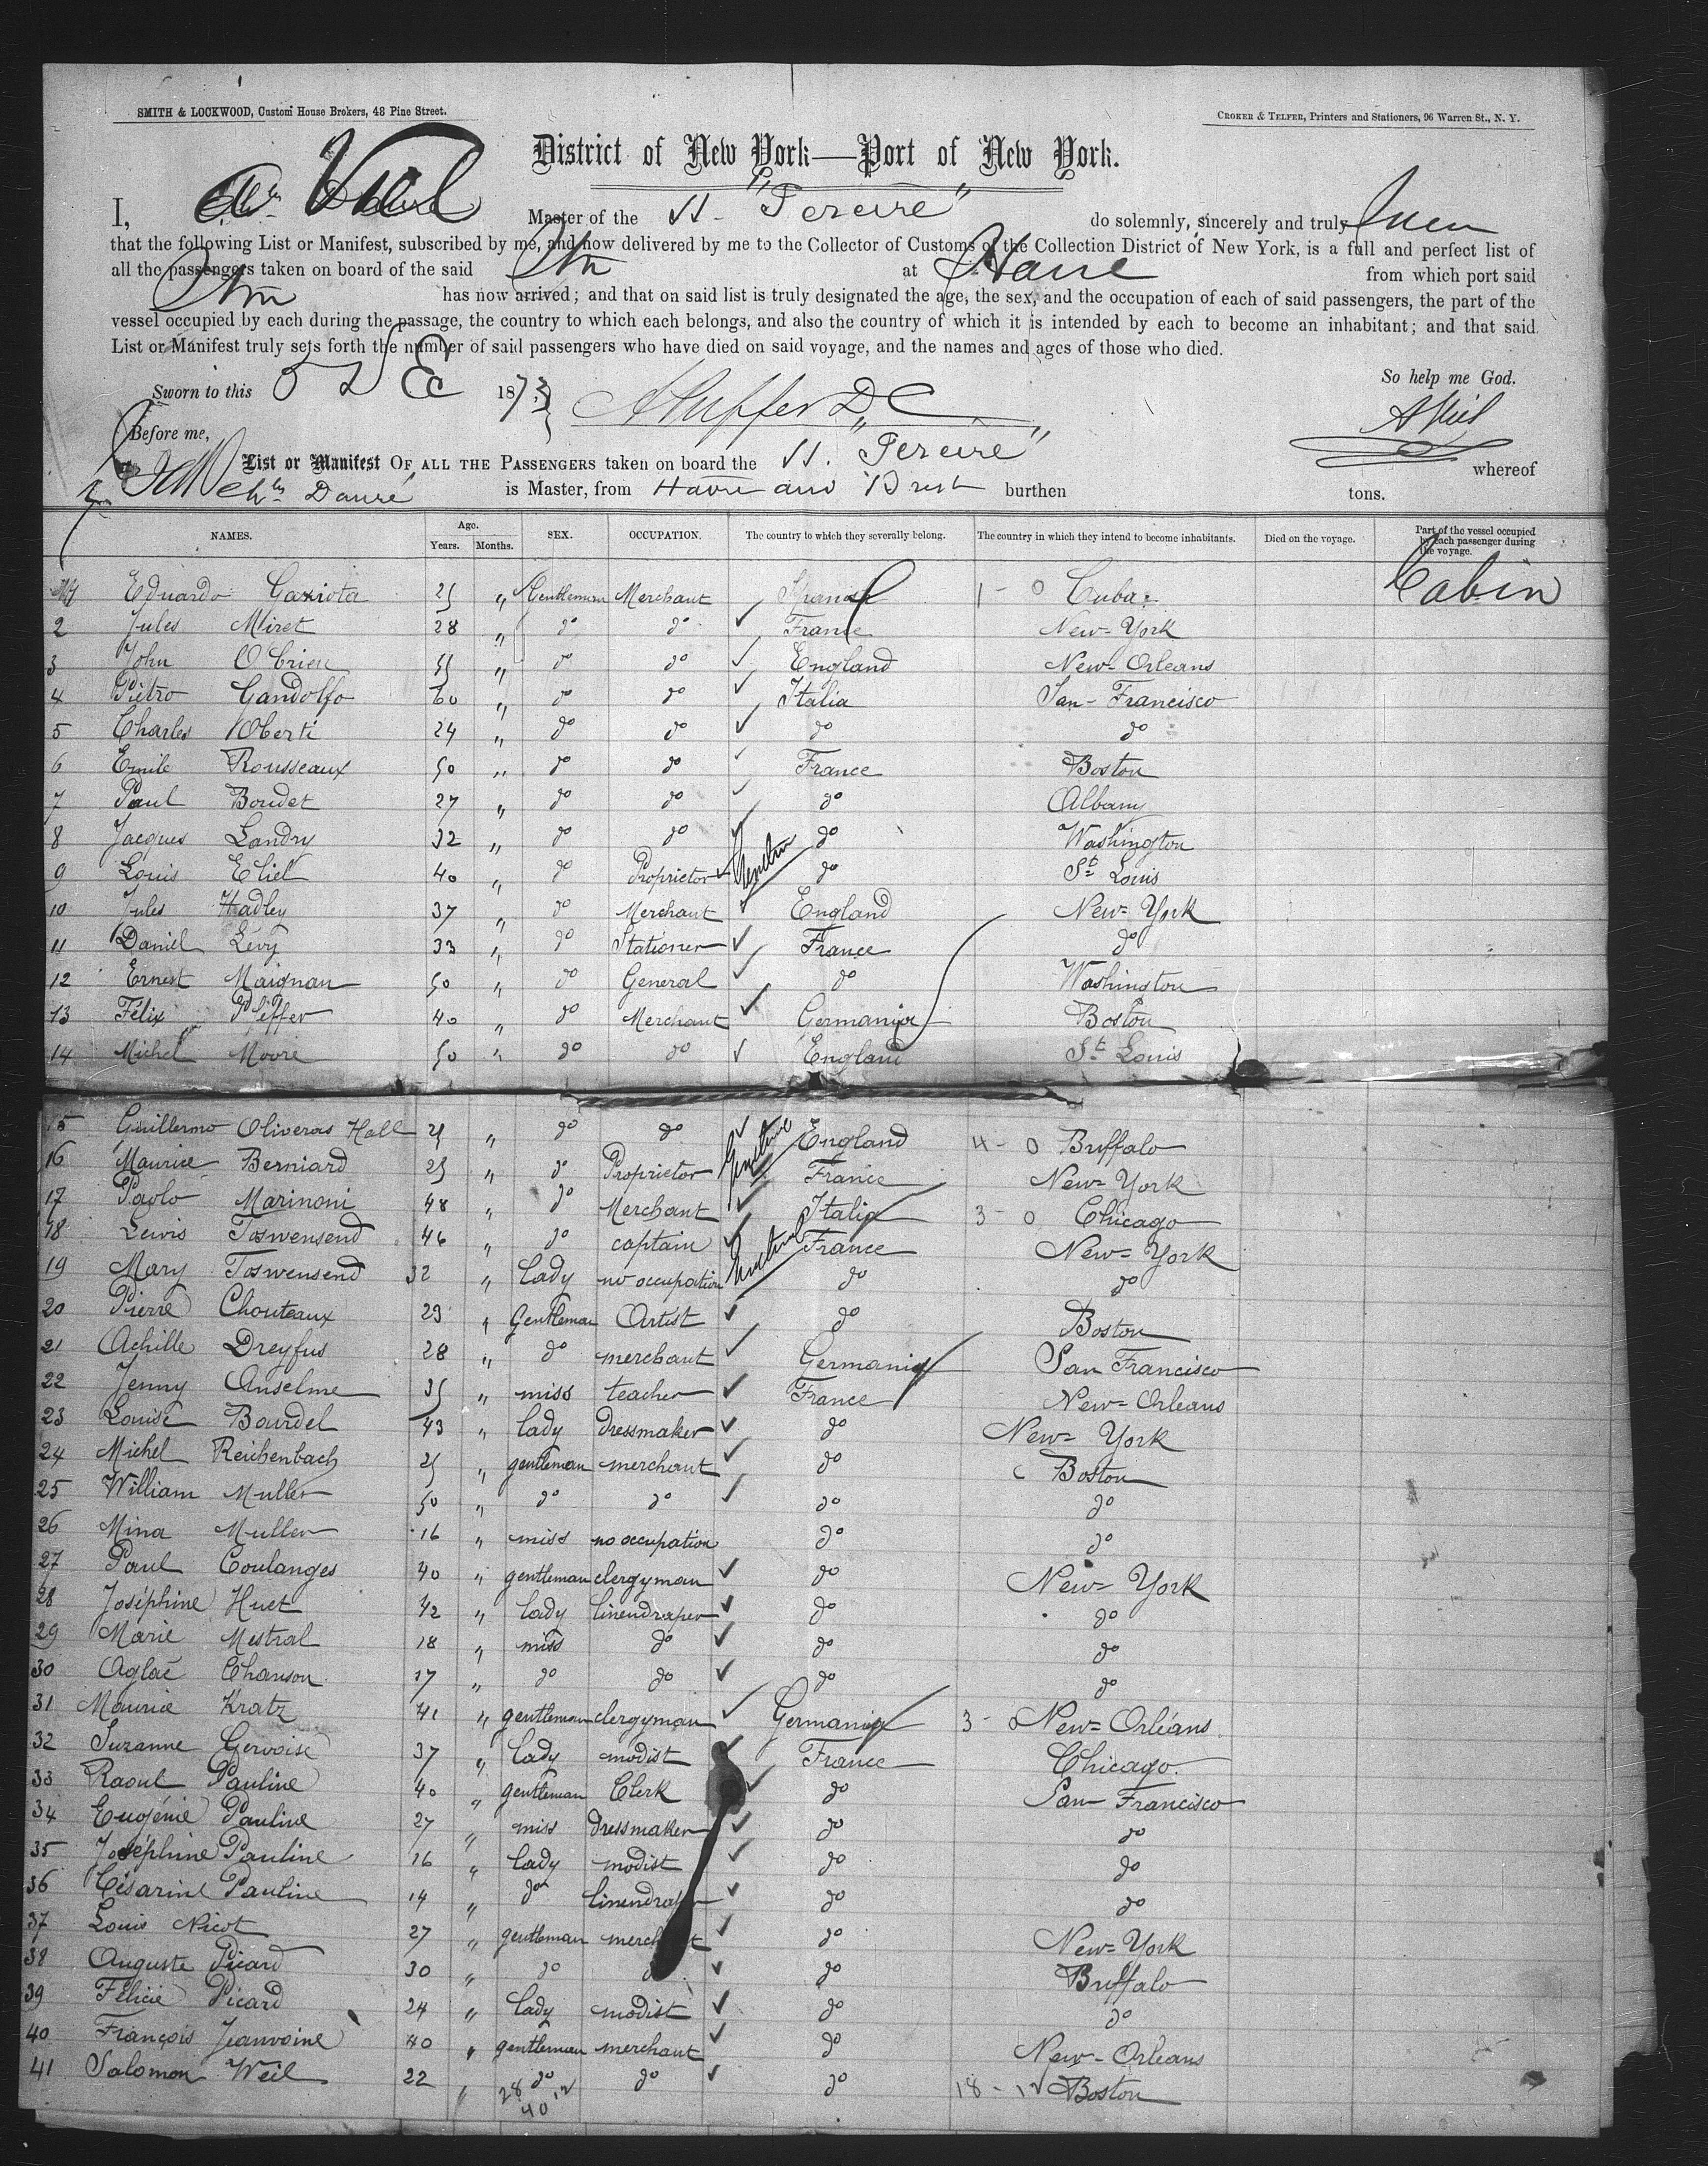 SMITH & LOCKWOOD, Custom House Brokers, 48 Pine Street.
CROKER & TELFER, Printers and Stationers, 96 Warren St., N. Y.
District of New York—Port of New York.
I, Master of the "Pereire" do solemnly, sincerely and truly
that the following List or Manifest, subscribed by me, and now delivered by me to the Collector of Customs of the Collection District of New York, is a full and perfect list of
all the passengers taken on board of the said Str at Havre from which port said
Str has now arrived; and that on said list is truly designated the age, the sex, and the occupation of each of said passengers, the part of the
vessel occupied by each during the passage, the country to which each belongs, and also the country of which it is intended by each to become an inhabitant; and that said
List or Manifest truly sets forth the number of said passengers who have died on said voyage, and the names and ages of those who died.
So help me God.
Sworn to this 5 Dec 1873
Before me,
List or Manifest OF ALL THE PASSENGERS taken on board the "Pereire" whereof
Chles Dauré is Master, from Havre and Brest burthen tons.
NAMES. Age. Years. Months. SEX. OCCUPATION. The country to which they severally belong. The country in which they intend to become inhabitants. Died on the voyage. Part of the vessel occupied by each passenger during the voyage.
Eduardo Gaxiota 25 " Gentleman Merchant 1 - 0 Cuba Cabin
2 Jules Miret 28 " do do France New-York
3 John O'brien 55 " do do England New-Orleans
4 Piétro Gandolfo 60 " do do Italia San-Francisco
5 Charles Oberti 24 " do do do do
6 Emile Rousseaux 50 " do do France Boston
7 Paul Boudet 27 " do do do Albany
8 Jacques Landry 32 " do do do Washington
9 Louis Eliel 40 " do Proprietor do St Louis
10 Jules Hadley 37 " do Merchant England New-York
11 Daniel Lévy 33 " do Stationer France do
12 Ernest Maignan 50 " do General do Washington
13 Félix Pfeffer 40 " do Merchant Germania Boston
14 Michel Moore 50 " do do England St Louis
15 Guillermo Oliveras Hall 25 " do do England 4 - 0 Buffalo
16 Maurice Berniard 25 " do Proprietor France New-York
17 Paolo Marinoni 48 " do Merchant Italia 3 - 0 Chicago
18 Lewis Toswensend 46 " do captain France New-York
19 Mary Toswensend 32 " lady no occupation do do
20 Pierre Chouteaux 23 " Gentleman Artist do Boston
21 Achille Dreyfus 28 " do merchant Germania San Francisco
22 Jenny Anselme 35 " miss teacher France New-Orleans
23 Louise Bourdel 43 " lady dressmaker do New-York
24 Michel Reichenbach 25 " gentleman merchant do Boston
25 William Muller 50 " do do do do
26 Mina Muller 16 " miss no occupation do do
27 Paul Coulanges 40 " gentleman clergyman do New-York
28 Joséphine Huet 42 " lady linendraper do do
29 Marie Mestral 18 " miss do do do
30 Aglaé Chanson 17 " do do do do
31 Maurice Kratz 41 " gentleman clergyman Germania 3 - 0 New-Orléans
32 Suzanne Gervoise 37 " lady modist France Chicago
33 Raoul Pauline 40 " gentleman Clerk do San Francisco
34 Eugénie Pauline 27 " miss dressmaker do do
35 Joséphine Pauline 16 " lady modist do do
36 Césarine Pauline 14 " do linendraper do do
37 Louis Nicot 27 " gentleman merchant do New-York
38 Auguste Picard 30 " do do do Buffalo
39 Félicie Picard 24 " lady modist do do
40 François Jeanvoine 40 " gentleman merchant do New-Orleans
41 Salomon Weil 22 " do do do 18 - 12 Boston
28 12
40